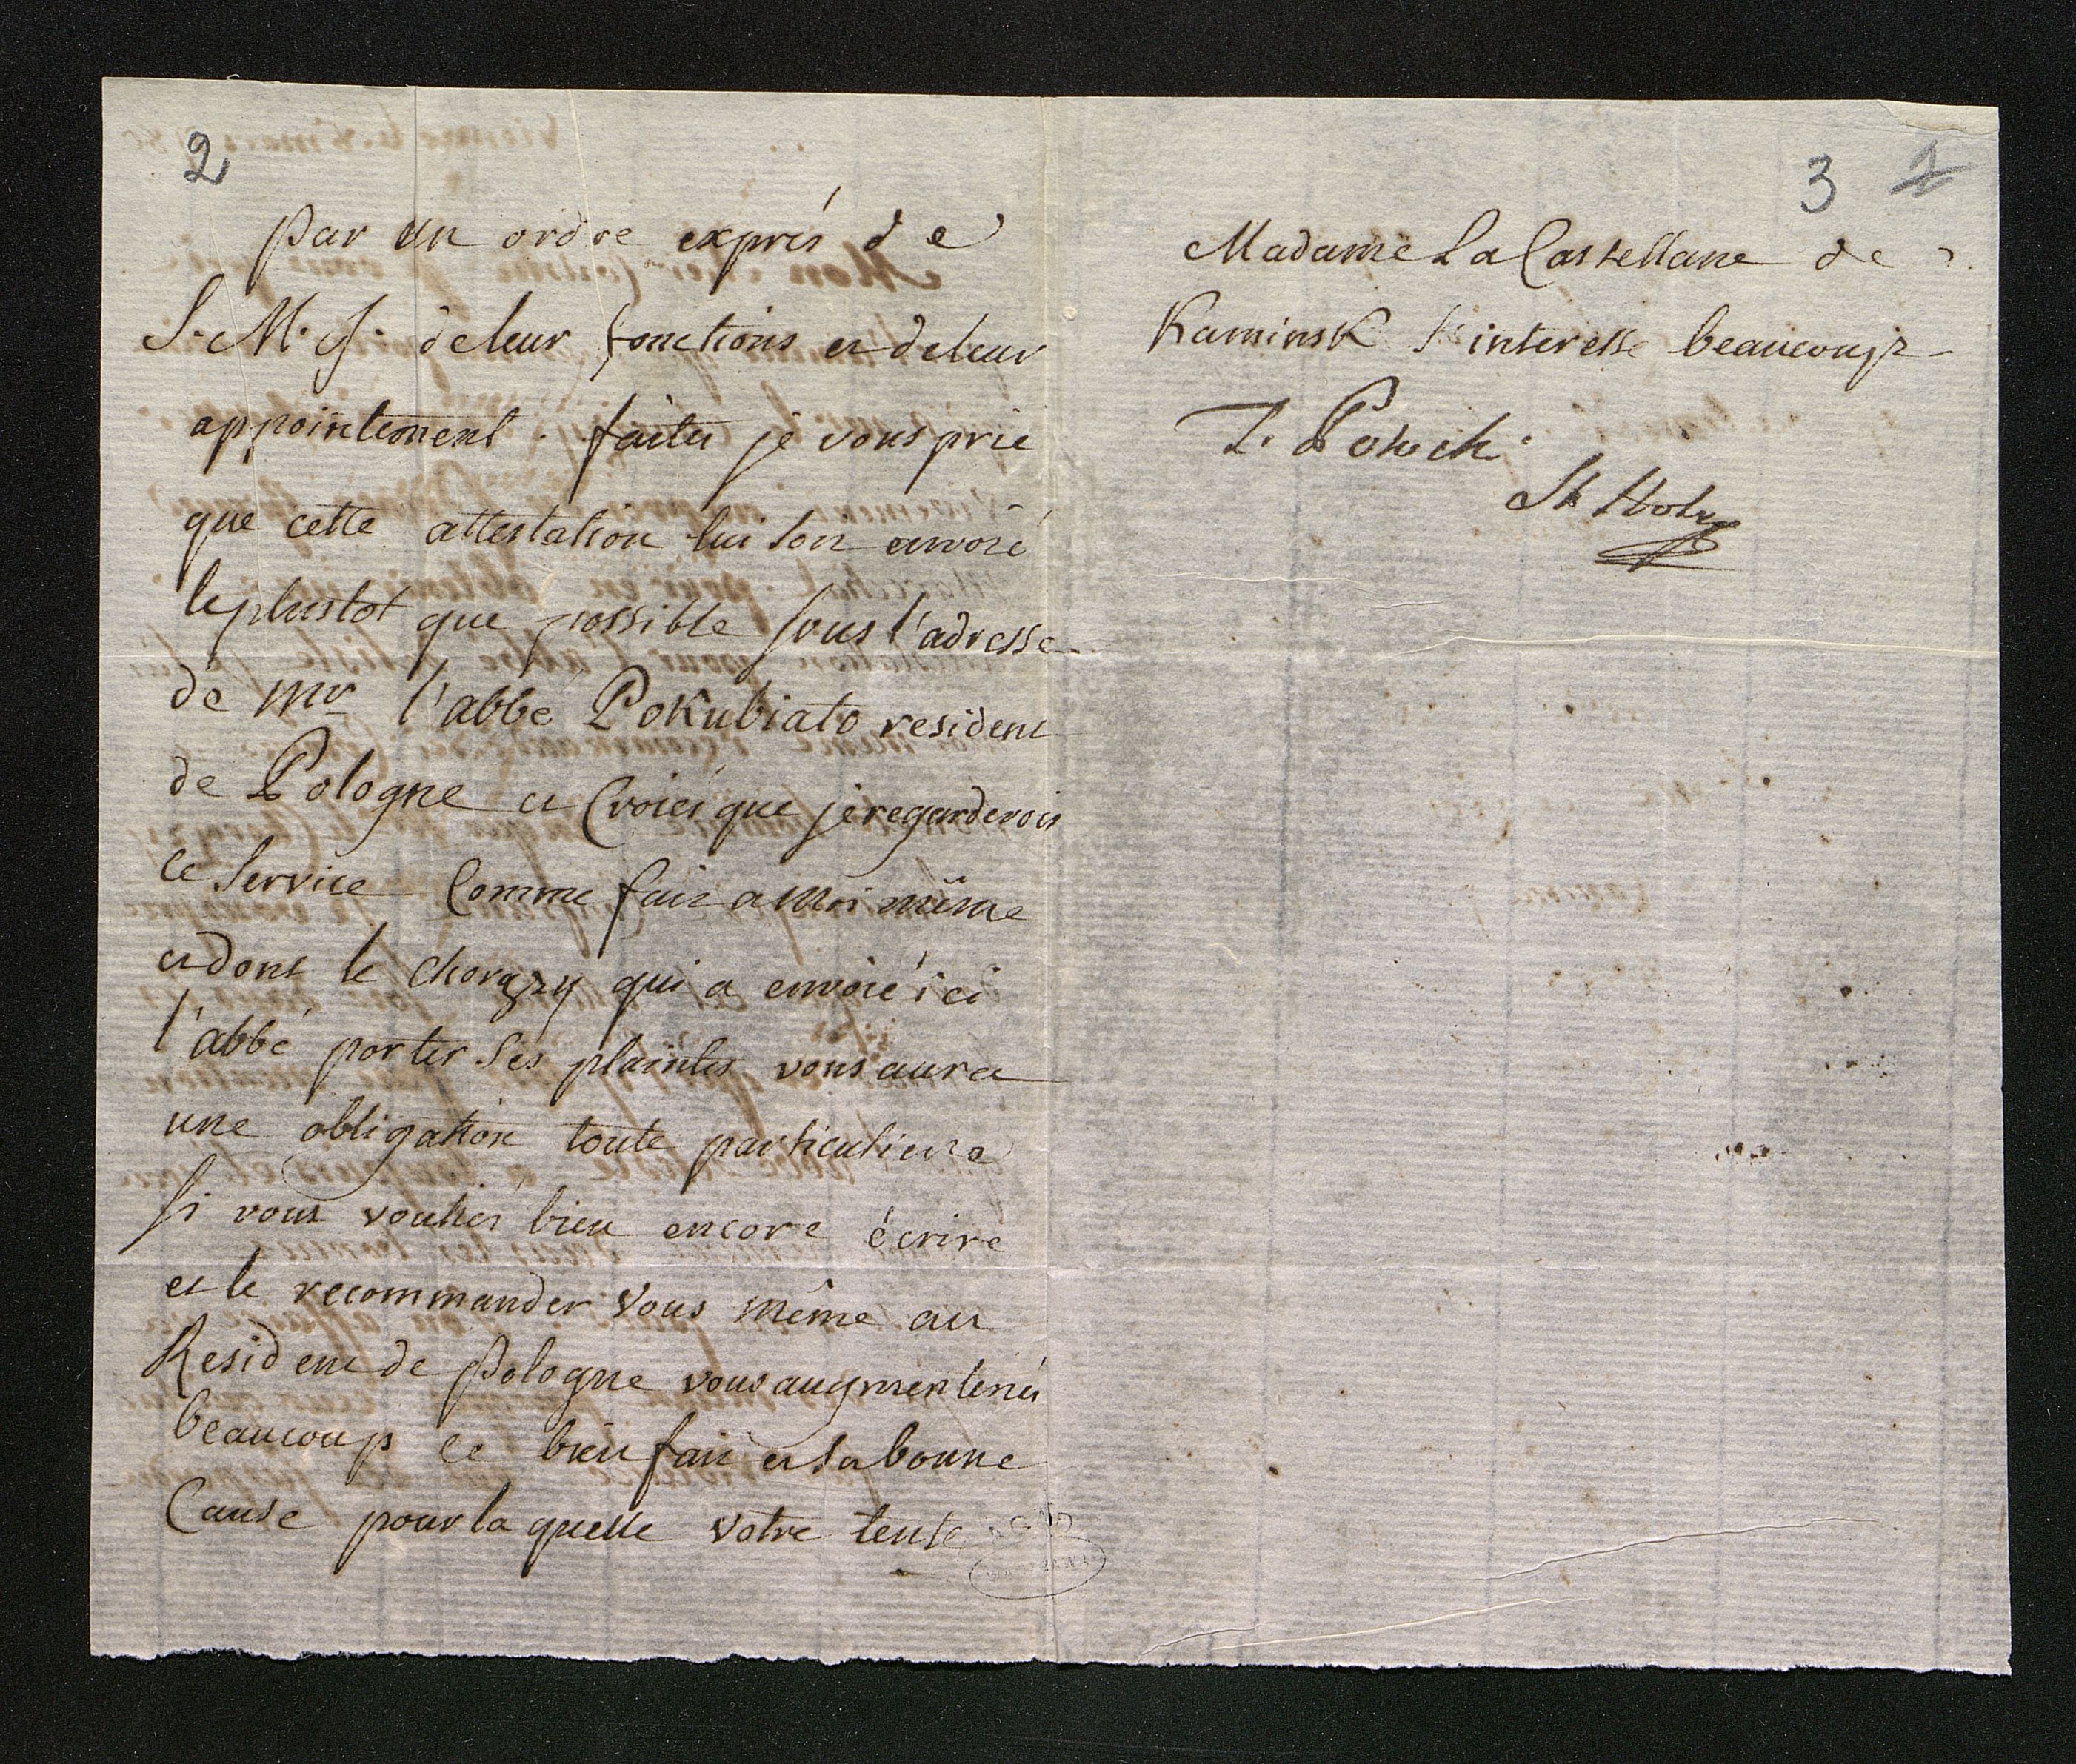 2
par un ordre exprés de
S. M. J. de leur fonctions et de leur
appointement. faites je vous prie
que cette attestation lui soit envoié
le plustot que possible sous l'adresse
de Mr l'abbe Pokubiato resident
de Pologne et croiés que je regarderois
ce service comme fait a moi même
et dont le chorązy qui a envoié ici
l'abbé porter ses plaintes vous aura
une obligation toute particuliere
si vous vouliés bien encore écrire
et le recommander vous même au
Resident de Pologne vous augmenteriés
beaucoup ce bienfait et sa bonne
Cause pour la quelle votre tente
3
Madame La Castellane de
Kaminsk s'interesse beaucoup
P. Potocki